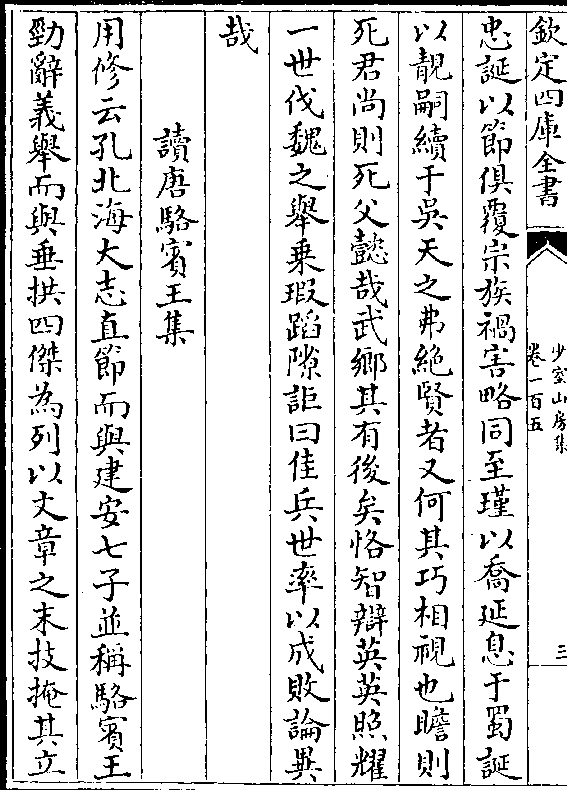 欽定四庫全書
少室山房集
卷一百五
三
忠誕以節俱覆宗族禍害略同至瑾以喬延息于蜀誕
以靚嗣續于吳天之弗絶賢者又何其巧相視也瞻則
死君尚則死父懿哉武鄉其有後矣恪智辯英英照耀
一世伐魏之舉乗瑕蹈隙詎曰佳兵世率以成敗論異
哉
讀唐駱賓王集
用修云孔北海大志直節而與建安七子並稱駱賓王
勁辭義舉而與垂拱四傑為列以文章之末技掩其立